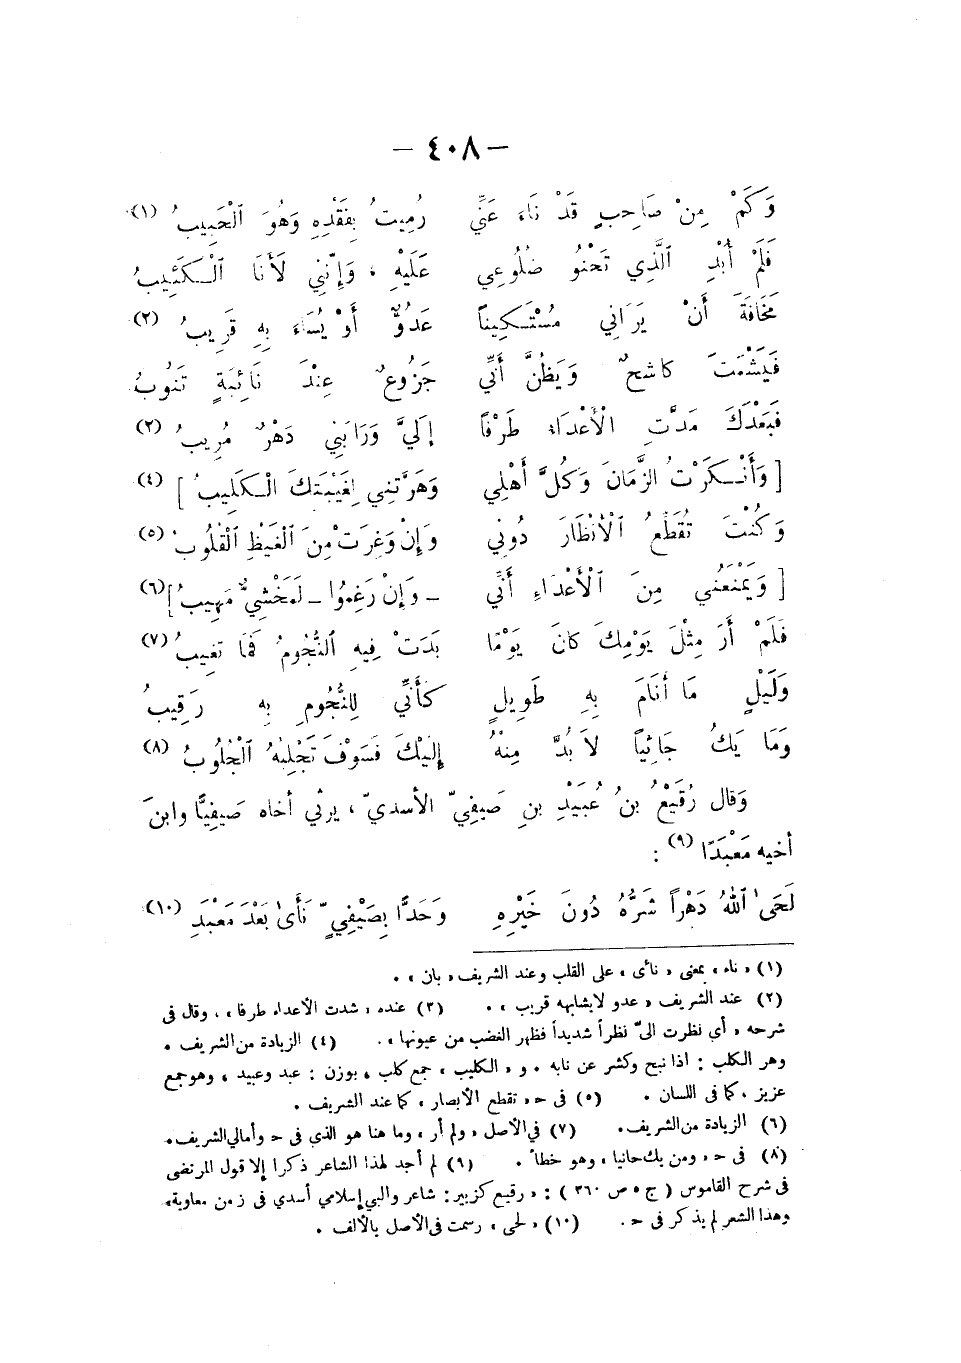 — ٤٠٨ —
وَكَمْ مِنْ صَاحِبٍ قَدْ نَاءَ عَنِّي رُمِيتُ بِفَقْدِهِ وَهُوَ ٱلْحَبِيبُ (١)
فَلَمْ أُبْدِ ٱلَّذِي تَحْنُو ضُلُوعِي عَلَيْهِ ، وَإِنَّنِي لَأَنَا ٱلْكَئِيبُ
مَخَافَةَ أَنْ يَرَانِي مُسْتَكِينًا عَدُوٌّ أَوْ يُسَاءَ بِهِ قَرِيبُ (٢)
فَيَشْمَتَ كاشحٌ وَيَظُنَّ أَنِّي جَزُوعٌ عِنْدَ نَائِبَةٍ تَنُوبُ
فَبَعْدَكَ مَدَّتِ الْأَعْدَاءُ طَرْفًا إلَيَّ وَرَابَنِي دَهْرٌ مُرِيبُ (٣)
[ وَأَنْكَرْتُ الزَّمَانَ وَكُلَّ أَهْلِي وَهَرَّتْنِي لِغَيْبَتِكَ الْكَلِيبُ ] (٤)
وَكُنْتَ تُقَطِّعُ ٱلْأَنْظَارَ دُونِي وَإِنْ وَغِرَتْ مِنَ ٱلْغَيْظِ ٱلْقُلُوبُ (٥)
[ وَيَمْنَعُنِي مِنَ ٱلْأَعْدَاءِ أَنِّي – وَإِنْ رَغِمُوا – لَمَخْشِيٌّ مَهِيبُ ] (٦)
فَلَمْ أَرَ مِثْلَ يَوْمِكَ كَانَ يَوْمًا بَدَتْ فِيهِ ٱلنُّجُومُ فَمَا تَغِيبُ (٧)
وَلَيْلٍ مَا أَنَامَ بِهِ طَوِيلٍ كَأَنِّي لِلنُّجُومِ بِهِ رَقِيبُ
وَمَا يَكُ جَائِيًا لَا بُدَّ مِنْهُ إِلَيْكَ فَسَوْفَ تَجْلِبُهُ ٱلْجَلُوبُ (٨)
وَقال رُقَيْعُ بنُ عُبَيْدِ بنِ صَيفِيّ الأسديّ ، يرثي أخاه صَيفِيًّا وابنَ
أخيه مَعْبَدًا (٩) :
لَحَىٰ ٱللّٰهُ دَهْرًا شَرُّهُ دُونَ خَيْرِهِ وَحَدًّا بِصَيْفِيٍّ نَأَىٰ بَعْدَ مَعْبَدِ (١٠)
(١) « ناء » بمعنى « نأى » على القلب وعند الشريف « بان » .
(٢) عند الشريف « عدو لايشابهه قريب » . (٣) عنده « شدت الأعداء طرفا » ، وقال فى
شرحه « أي نظرت الىّ نظراً شديداً فظهر الغضب من عيونها » . (٤) الزيادة من الشريف .
وهر الكلب : اذا نبح وكشر عن نابه . و « الكليب » جمع كلب ، بوزن : عبد وعبيد ، وهو جمع
عزيز ، كما فى اللسان . (٥) فى ح « تقطع الأبصار » كما عند الشريف .
(٦) الزيادة من الشريف . (٧) في الأصل « ولم أر » وما هنا هو الذى فى ح وأمالي الشريف .
(٨) فى ح « ومن يك حانيا » وهو خطأ . (٩) لم أجد لهذا الشاعر ذكرا إلا قول المرتضى
فى شرح القاموس ( ج ٥ ص ٣٦٠ ) : « رقيع كزبير : شاعر والبي إسلامي أسدي فى زمن معاوية »
وهذا الشعر لم يذكر فى ح . (١٠) « لحى » رسمت فى الأصل بالألف .